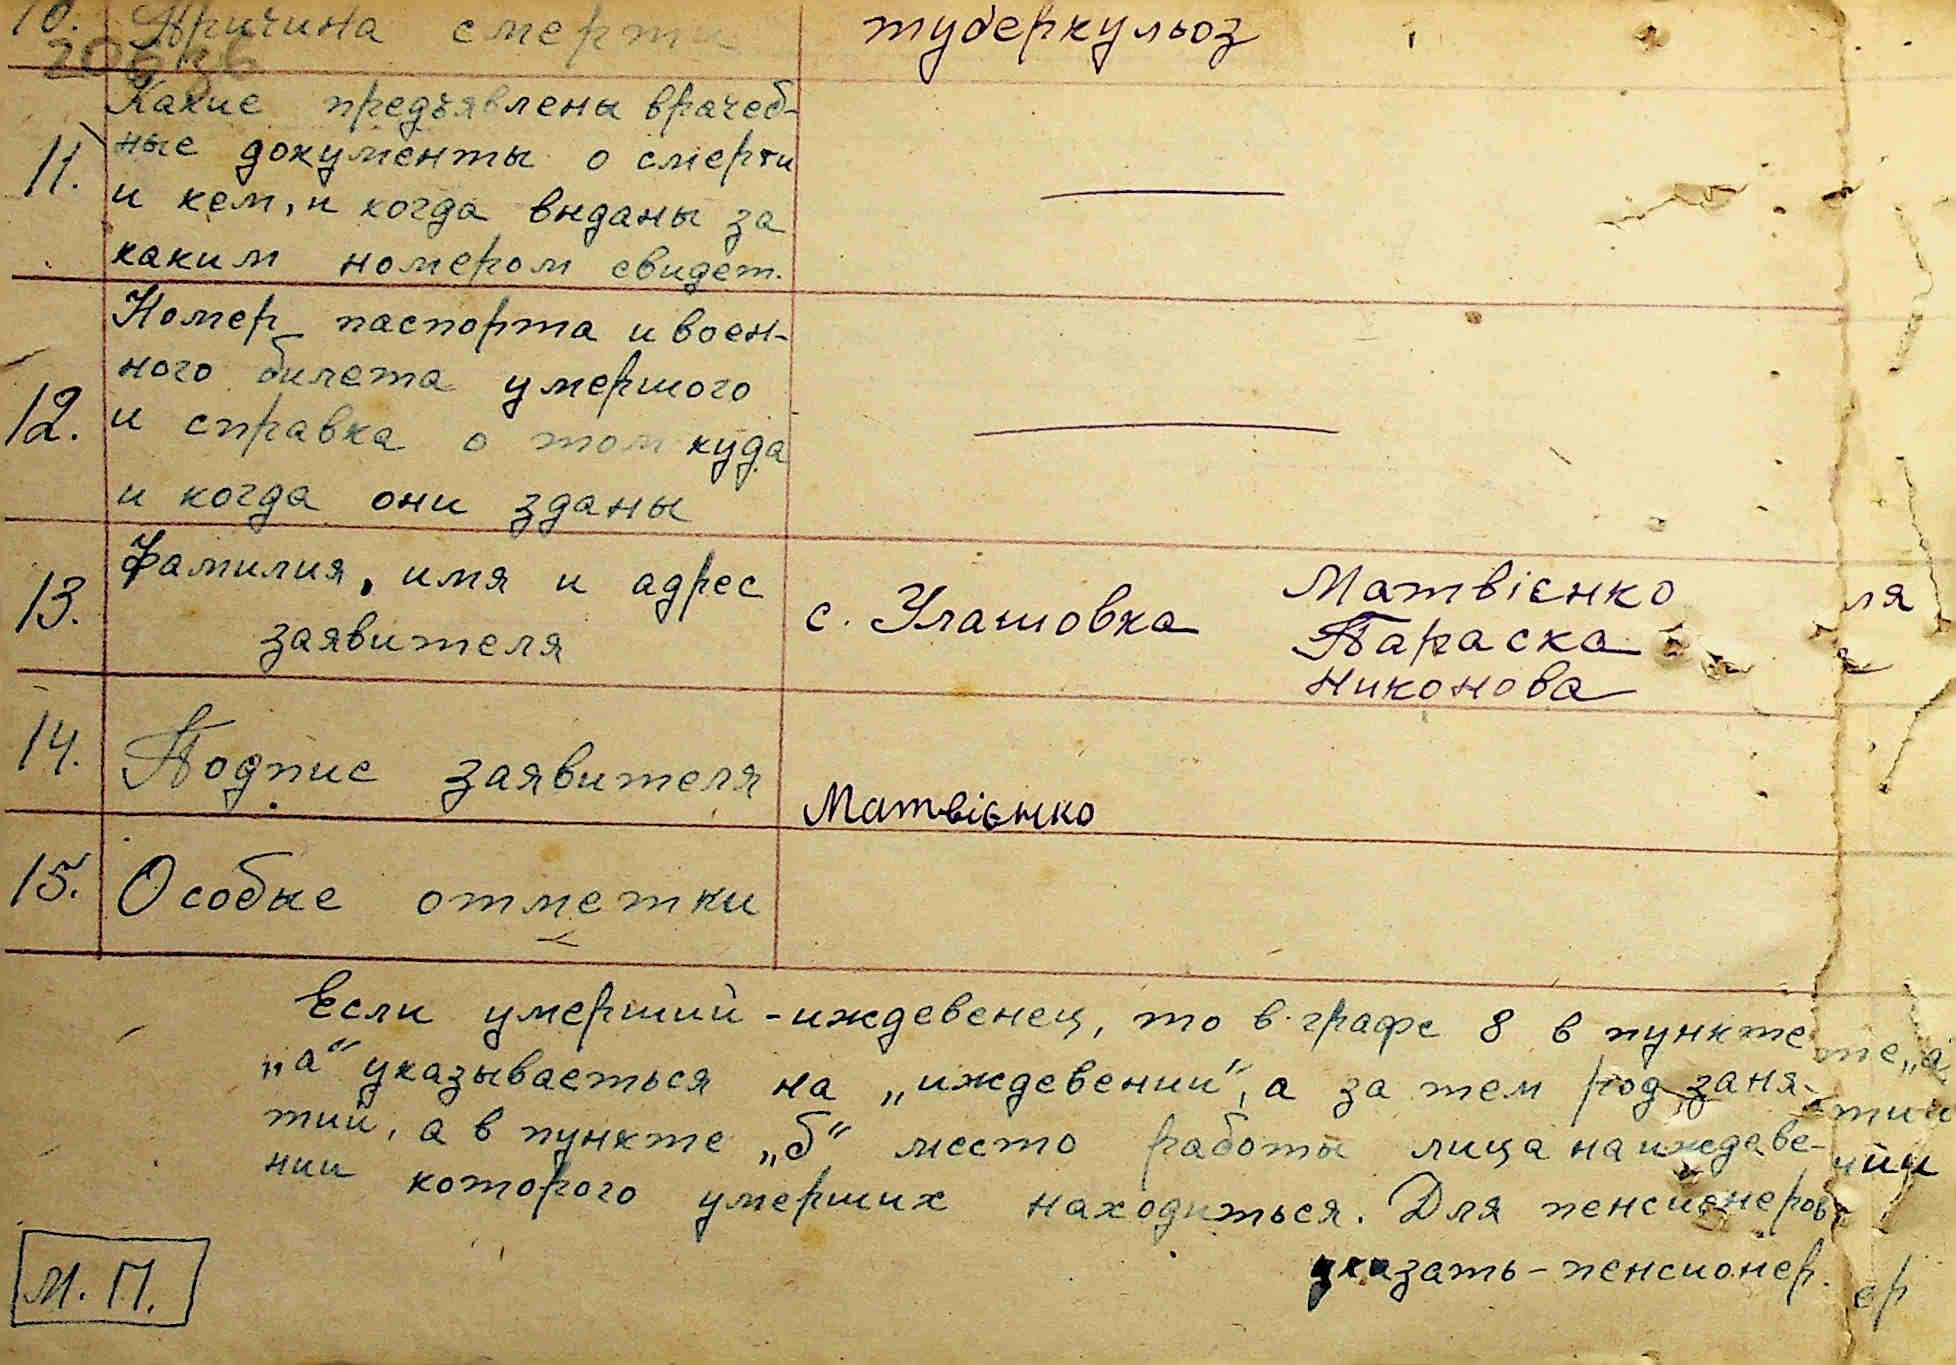 10. Причина смерти туберкульоз
Какие предъявлены врачеб-
11. ные документы о смерти
и кем, и когда выданы за
каким номером свидет.
Номер паспорта и воен-
ного билета умершого
12. и справка о том куда
и когда они зданы
13. Фамилия, имя и адрес
заявителя
с. Улашовка
Матвієнко
Параска
Никонова
ля
14. Подпис заявителя Матвієнко
15. Особые отметки
Если умерший - иждевенец, то в графе 8 в пункте
„а“ указываеться на „иждевении“, а за тем род заня-
тий, а в пункте „б“ место работы лица на иждеве-
нии которого умерших находиться. Для пенсионеров
указать - пенсионер.
те „а
тий
нии
ер
М. П.